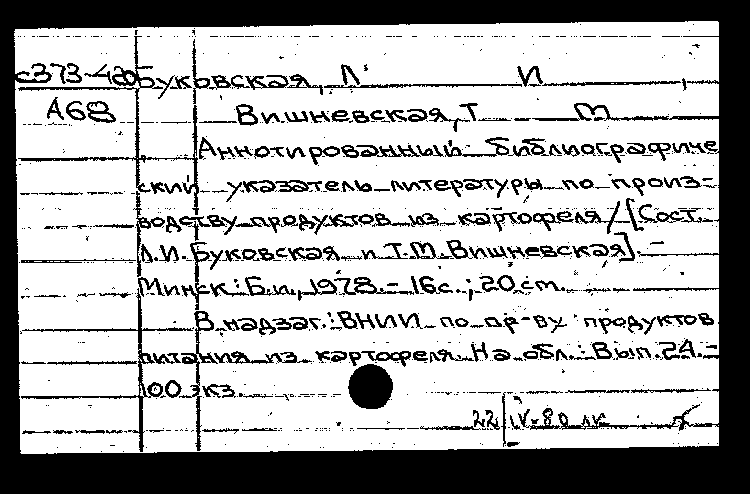 с373-420 Буковская, Л И,
А68 Вишневская, Т М
Аннотированный библиографиче
ский указатель литературы по произ-
водству продуктов из картофеля / [Сост.
Л.И. Буковская и Т.М. Вишневская]. -
Минск: Б.и., 1978. - 16с.; 20 см.
В надзаг.: ВНИИ по пр-ву продуктов
питания из картофеля. На обл.: Вып. 24. -
100 экз.
22 IV-80 лк